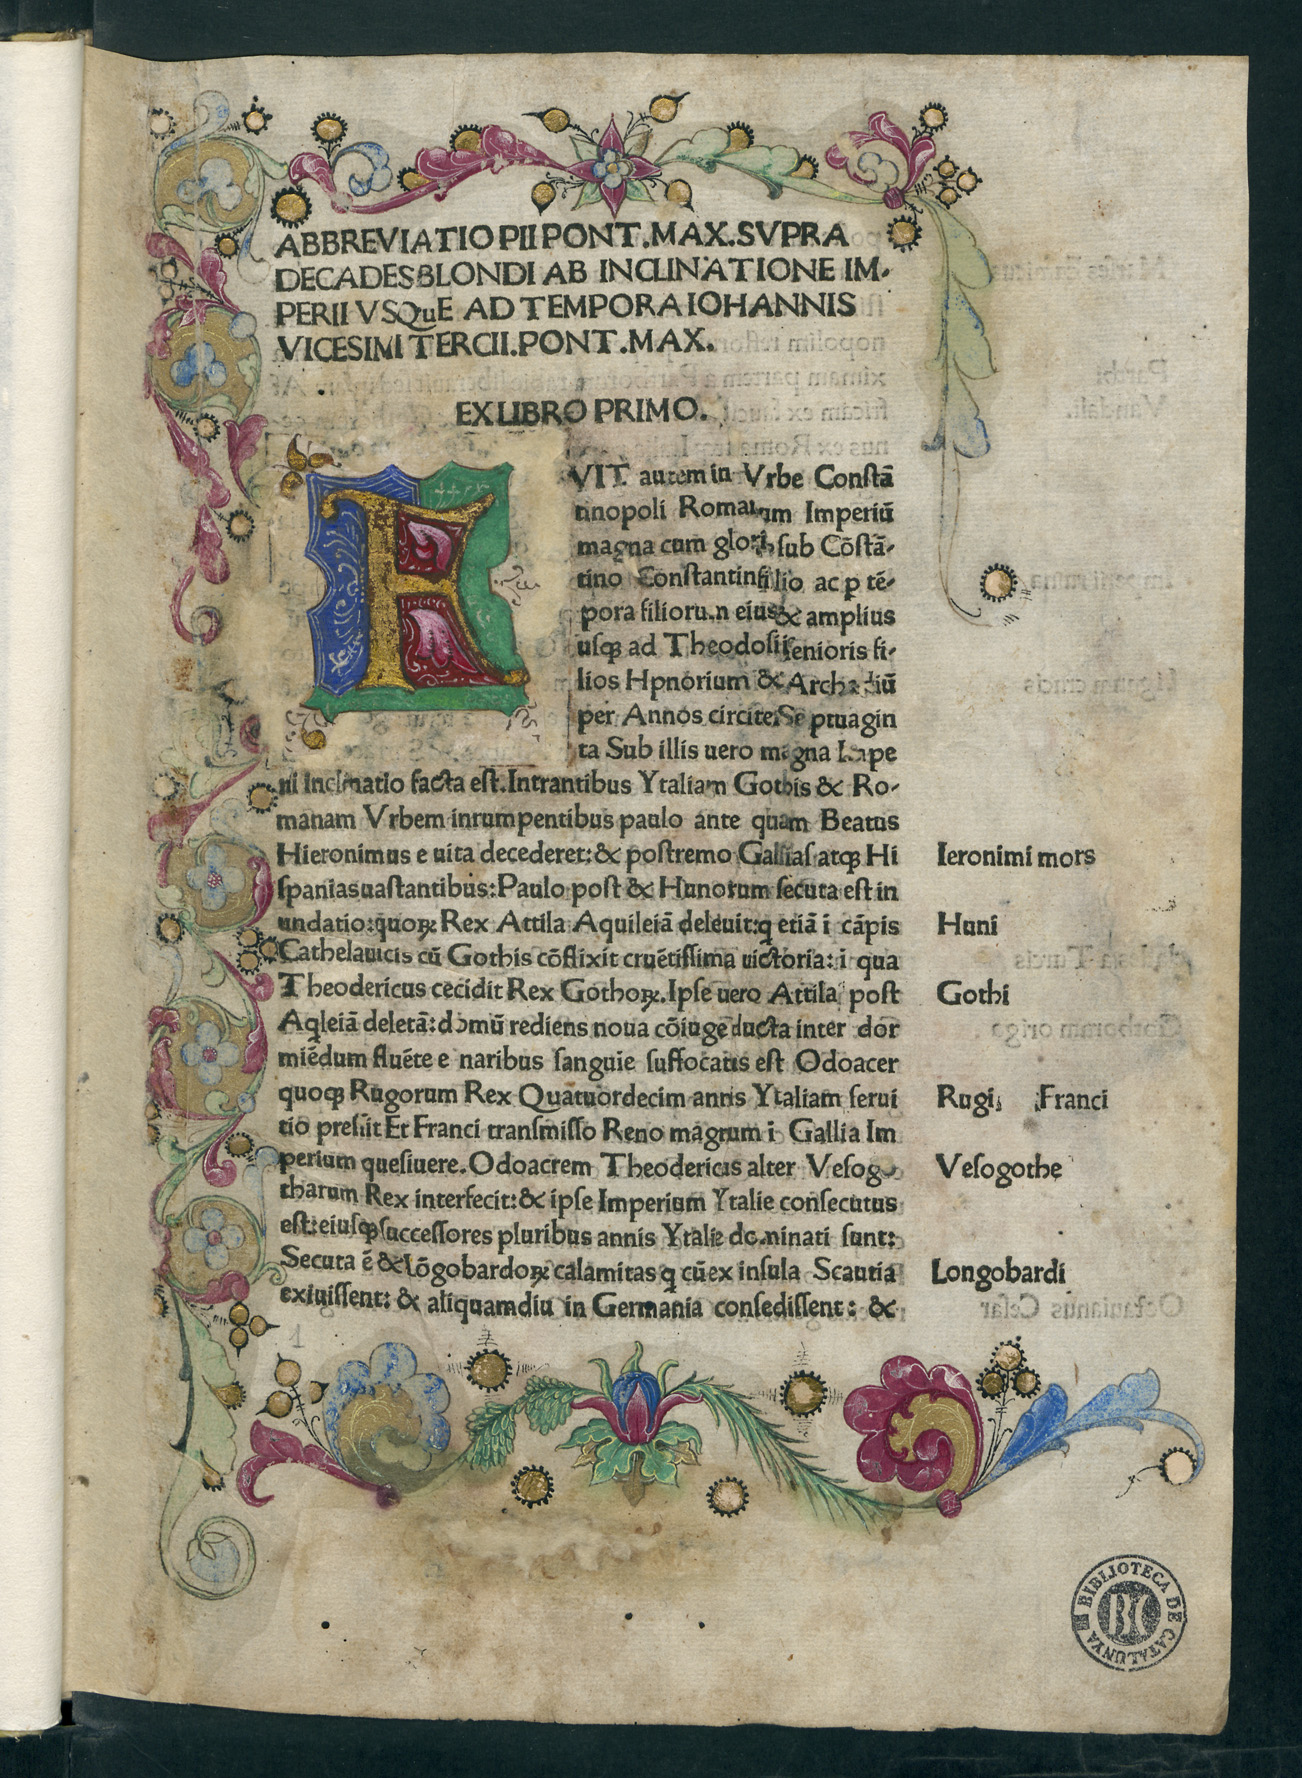 ABBREVIATIO PII PONT. MAX. SVPRA
DECADES BLONDI AB INCLINATIONE IM-
PERII VSQuE AD TEMPORA IOHANNIS
VICESIMI TERCII. PONT. MAX.
EX LIBRO PRIMO.
FVIT autem in Vrbe Constā
tinopoli Romanum Imperiū
magna cum gloria sub Cōstā-
tino Constantini filio ac ꝑ tē-
pora filiorum eius & amplius
usqꝫ ad Theodosii senioris fi-
lios Hpnorium & Archadiū
per Annos circiter Septuagin
ta Sub illis uero magna Impe
rii Inclinatio facta est. Intrantibus Ytaliam Gothis & Ro-
manam Vrbem inrumpentibus paulo ante quam Beatus
Hieronimus e uita decederet: & postremo Gallias atqꝫ Hi
spanias uastantibus: Paulo post & Hunorum secuta est in
undatio: quoꝝ Rex Attila Aquileiā deleuit: q etiā i cāpis
Cathelauicis cū Gothis cōflixit cruētissima uictoria: i qua
Theodericus cecidit Rex Gothoꝝ. Ipse uero Attila post
Aqleiā deletā: domū rediens noua cōiuge ducta inter dor
miēdum fluēte e naribus sanguie suffocatus est Odoacer
quoqꝫ Rugorum Rex Quatuordecim annis Ytaliam serui
tio pressit Et Franci transmisso Reno magnum i Gallia Im
perium quesiuere. Odoacrem Theodericus alter Vesogo
tharum Rex interfecit: & ipse Imperium Ytalie consecutus
est: eiusqꝫ successores pluribus annis Ytalie dominati sunt:
Secuta ē & Lōgobardoꝝ calamitas q cū ex insula Scantia
exiuissent: & aliquamdiu in Germania consedissent: &
Ieronimi mors
Huni
Gothi
Rugi, Franci
Vesogothe
Longobardi
1
BIBLIOTECA DE CATALUNYA
BC